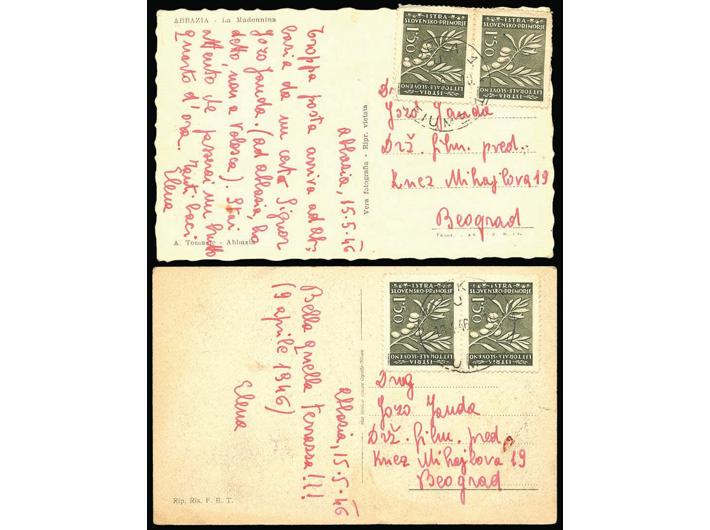 ABBAZIA - La Madonnina
Abbasia, 15.5.46
Troppa posta arriva ad Ab,
basia da un certo Signor
Jozo Janda. (ad Abbasia, ho
detto, non a Volosca). Stai
attento che passerai un brutto
quarto d'ora. Tanti baci
Elena
A. Tomasic - Abbazia
Vera fotografia - Ripr. vietata
ISTRA
SLOVENSKO-PRIMORJE
1'50
ISTRIA
LITTORALE-SLOVENO
ISTRA
SLOVENSKO-PRIMORJE
1'50
ISTRIA
LITTORALE-SLOVENO
Jozo Janda
Drž. film. pred.
Knez Mihajlova 19
Beograd
Abbasia, 15.5.46
Bella quella terrassa!!!
(9 aprile 1946)
Elena
Rip. Ris. F. E. T.
ISTRA
SLOVENSKO-PRIMORJE
1'50
ISTRIA
LITTORALE-SLOVENO
ISTRA
SLOVENSKO-PRIMORJE
1'50
ISTRIA
LITTORALE-SLOVENO
Drug
Jozo Janda
Drž. film. pred.
Knez Mihajlova 19
Beograd